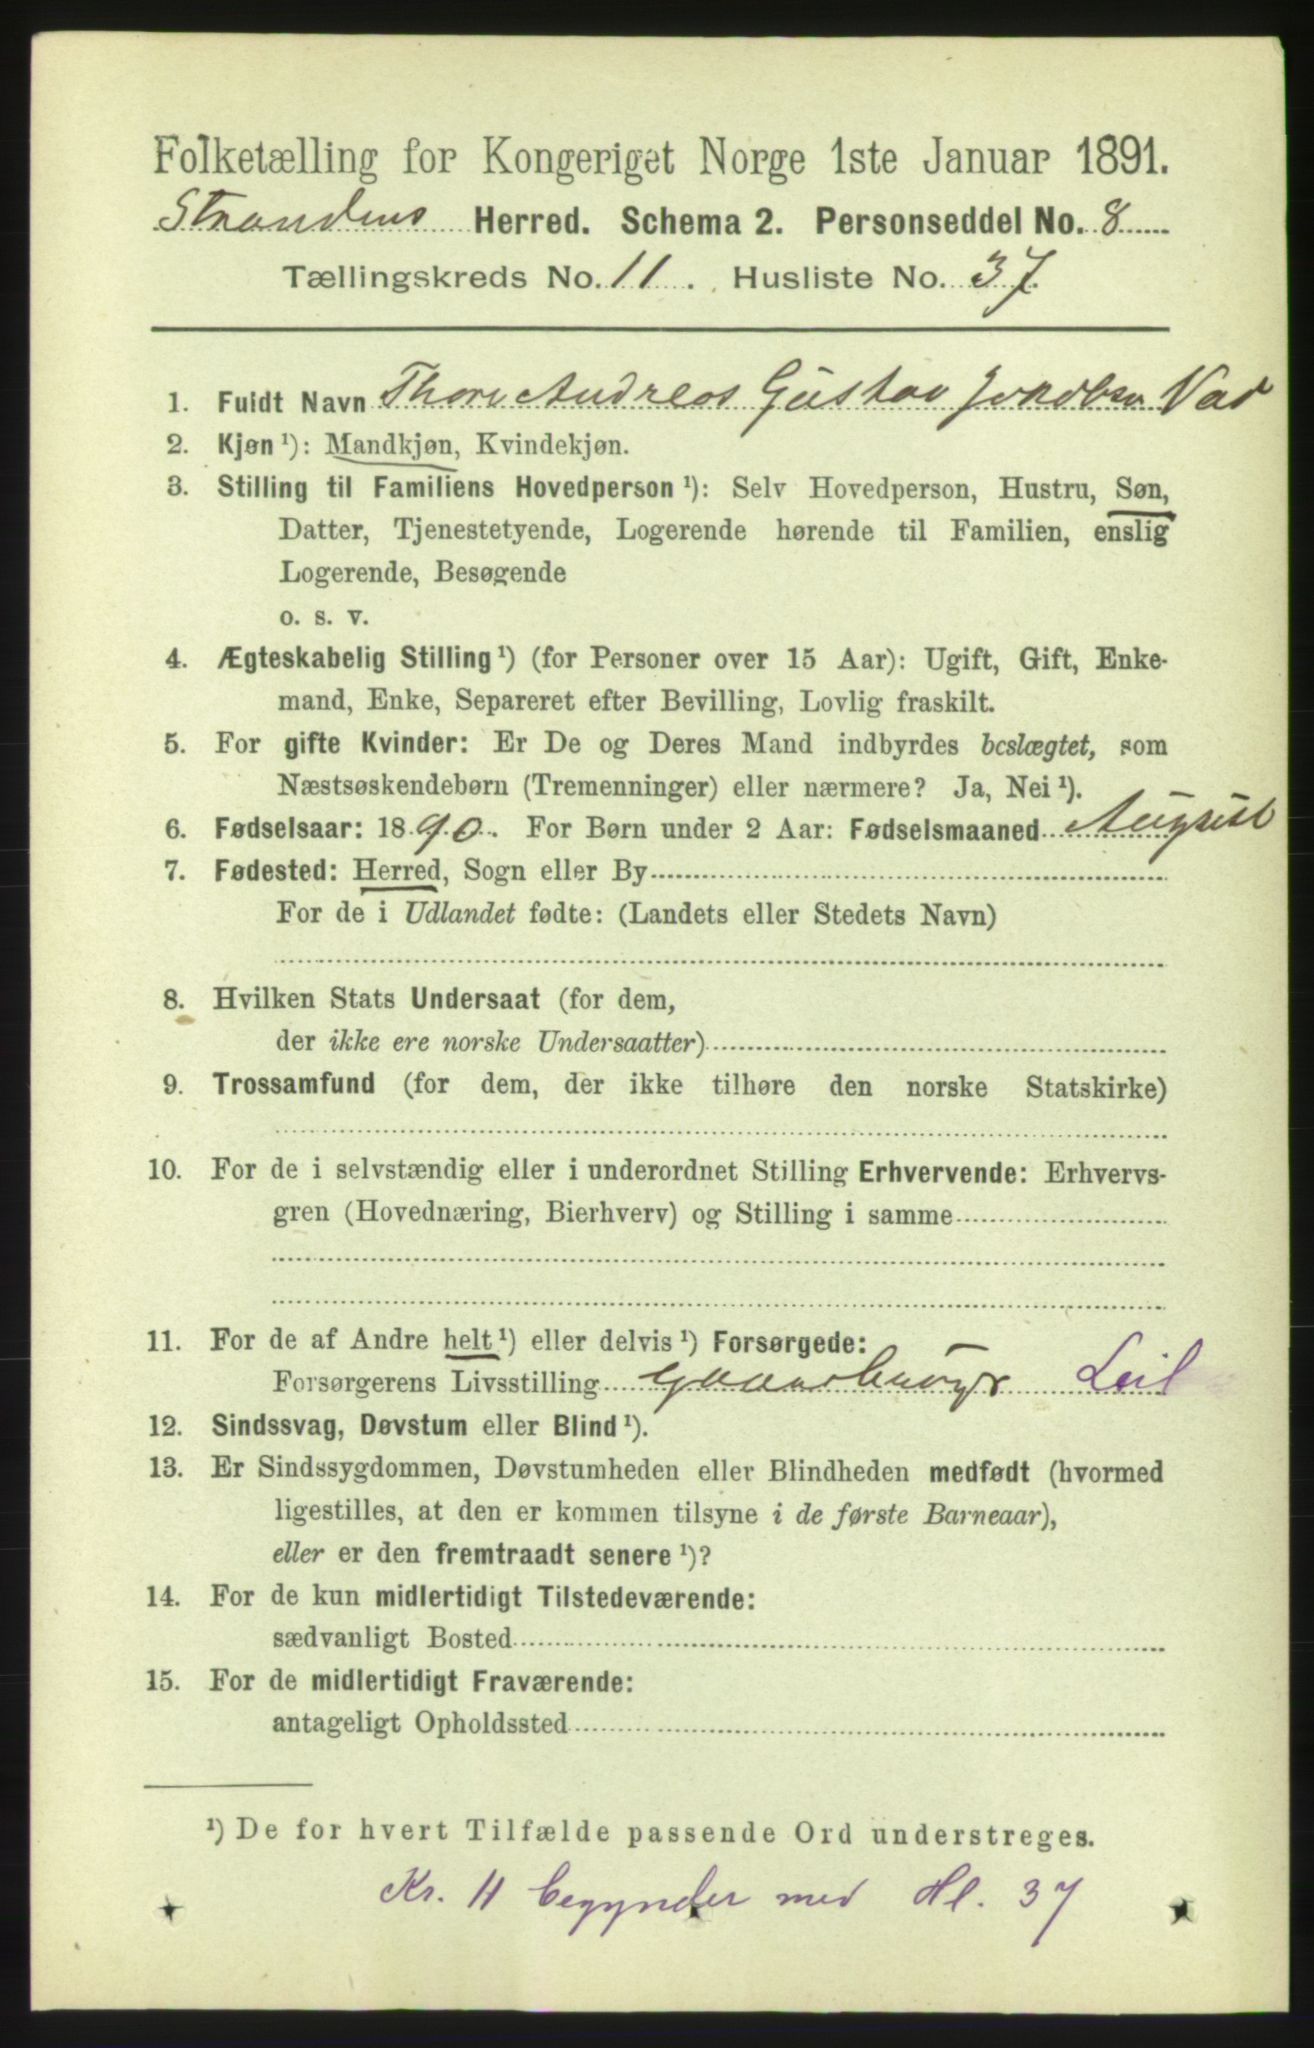 Folketælling for Kongeriget Norge 1ste Januar 1891.
Strandens Herred. Schema 2. Personseddel No. 8
Tællingskreds No. 11. Husliste No. 37.
1. Fuldt Navn Thorv Andreas Gustav Jakobsen
2. Kjøn ¹): Mandkjøn, Kvindekjøn.
3. Stilling til Familiens Hovedperson ¹): Selv Hovedperson, Hustru, Søn,
Datter, Tjenestetyende, Logerende hørende til Familien, enslig
Logerende, Besøgende
o. s. v.
4. Ægteskabelig Stilling ¹) (for Personer over 15 Aar): Ugift, Gift, Enke-
mand, Enke, Separeret efter Bevilling, Lovlig fraskilt.
5. For gifte Kvinder: Er De og Deres Mand indbyrdes beslægtet, som
Næstsøskendebørn (Tremenninger) eller nærmere? Ja, Nei ¹).
6. Fødselsaar: 1890. For Børn under 2 Aar: Fødselsmaaned August
7. Fødested: Herred, Sogn eller By
For de i Udlandet fødte: (Landets eller Stedets Navn)
8. Hvilken Stats Undersaat (for dem,
der ikke ere norske Undersaatter)
9. Trossamfund (for dem, der ikke tilhøre den norske Statskirke)
10. For de i selvstændig eller i underordnet Stilling Erhvervende: Erhvervs-
gren (Hovednæring, Bierhverv) og Stilling i samme
11. For de af Andre helt ¹) eller delvis ¹) Forsørgede:
Forsørgerens Livsstilling Gaardbruger Leil
12. Sindssvag, Døvstum eller Blind ¹).
13. Er Sindssygdommen, Døvstumheden eller Blindheden medfødt (hvormed
ligestilles, at den er kommen tilsyne i de første Barneaar),
eller er den fremtraadt senere ¹)?
14. For de kun midlertidigt Tilstedeværende:
sædvanligt Bosted
15. For de midlertidigt Fraværende:
antageligt Opholdssted
¹) De for hvert Tilfælde passende Ord understreges.
Kr. 11 begynder med Hl. 37